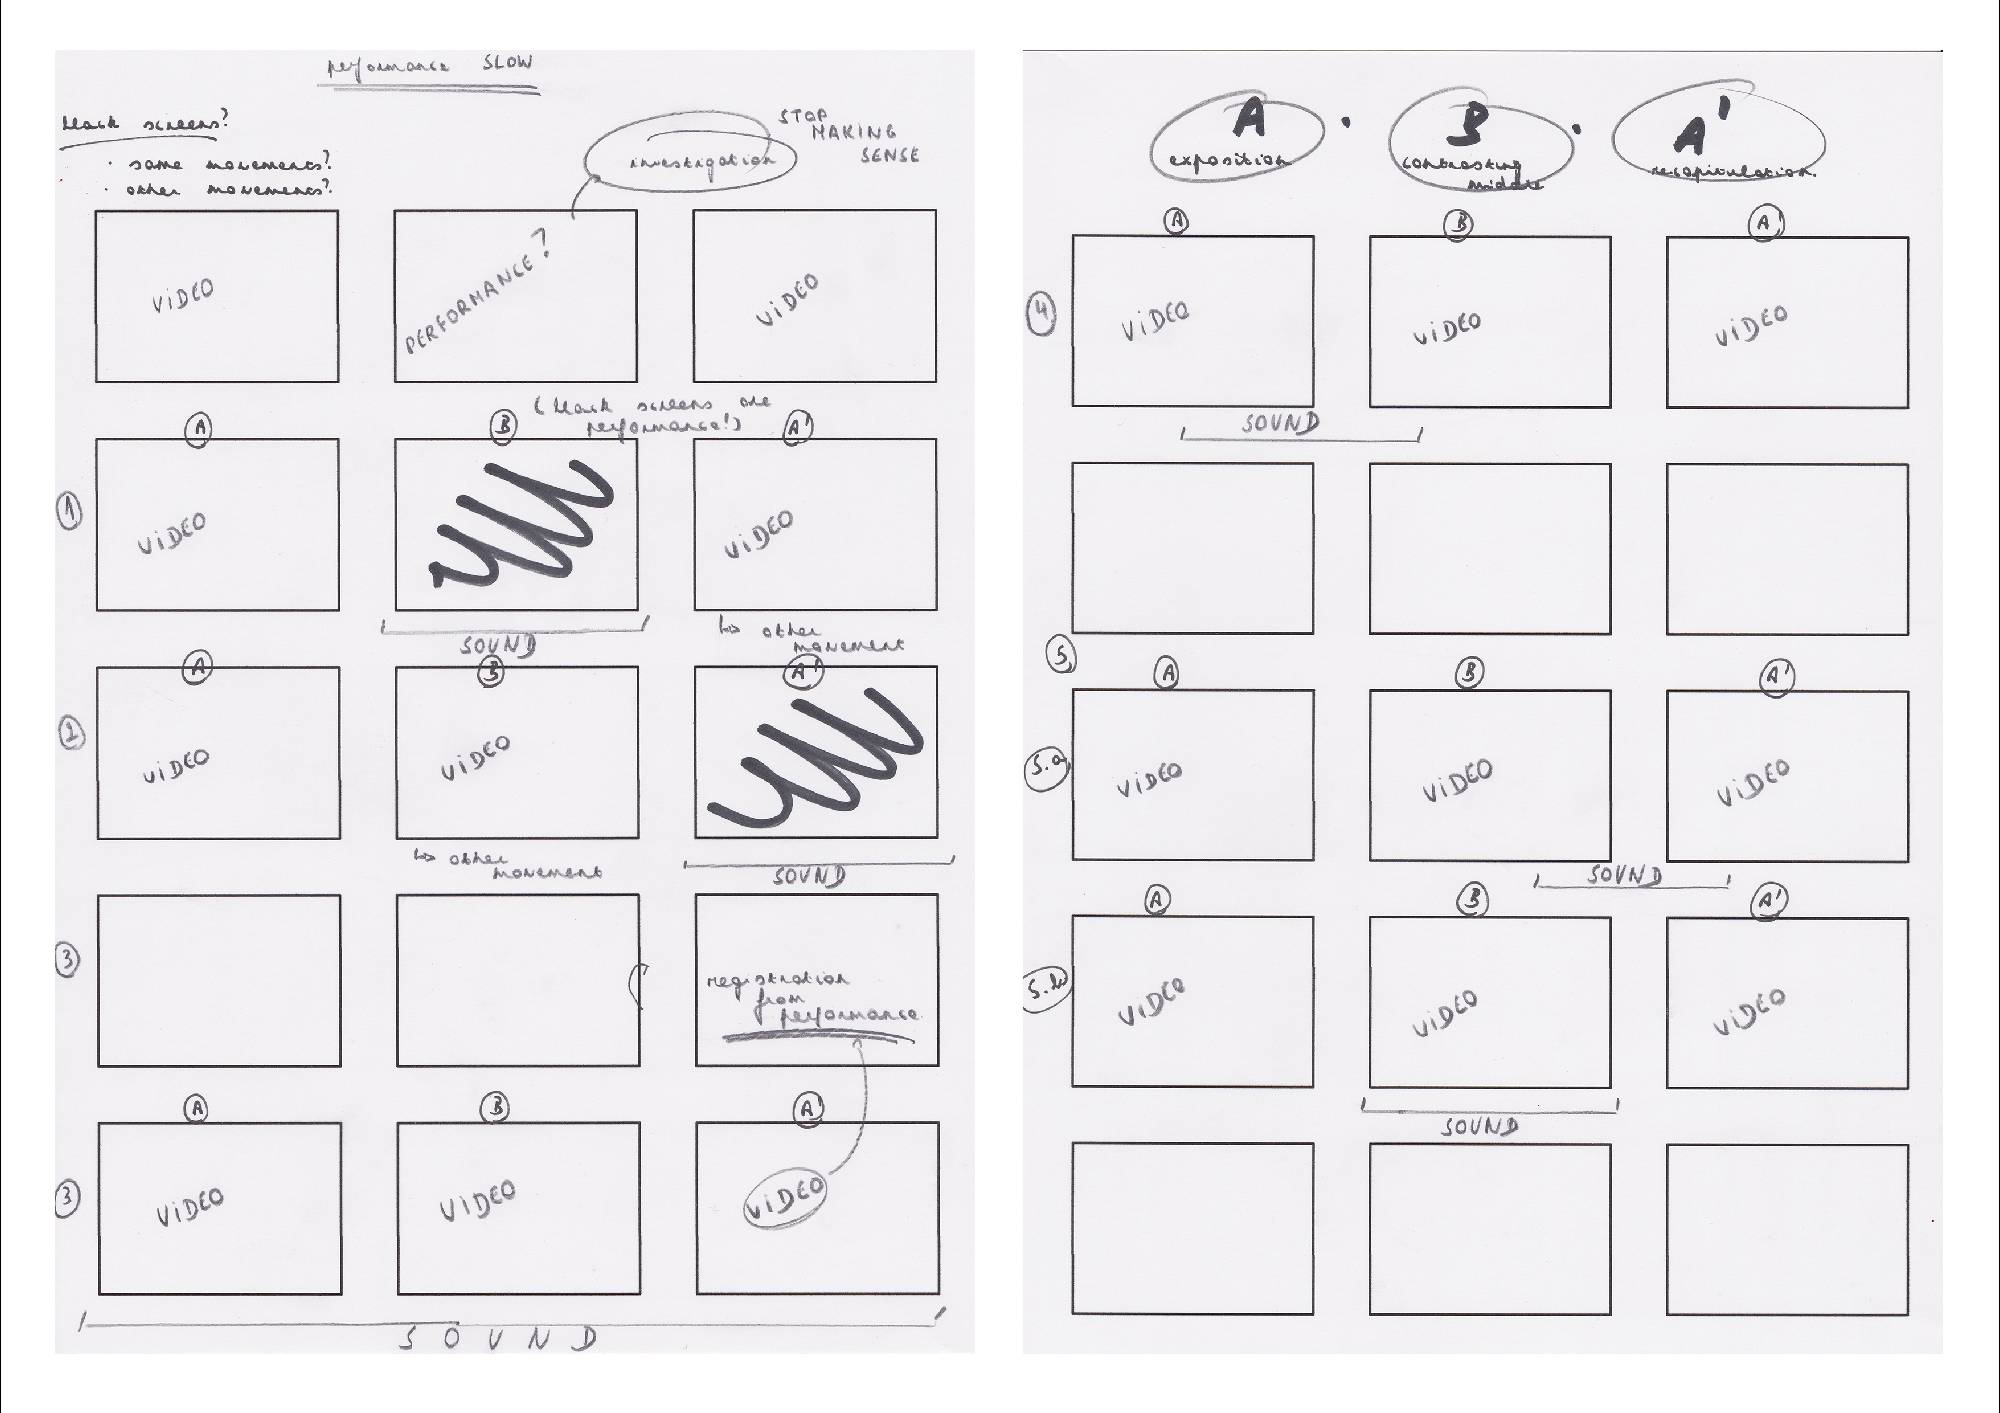 performance SLOW
black screens?
· same movements?
· other movements?
investigation
STOP
MAKING
SENSE
ViDEO
PERFORMANCE?
ViDEO
(black screens are
performance!)
A
B
A'
1
ViDEO
ViDEO
SOUND
↳ other
movement
A
B
A'
2
ViDEO
ViDEO
↳ other
movement
SOUND
3
registration
from
performance
A
B
A'
3
ViDEO
ViDEO
ViDEO
SOUND
A · B · A'
exposition
contrasting
middle
recapitulation.
A
B
A'
4
ViDEO
ViDEO
ViDEO
SOUND
5
A
B
A'
5.a
ViDEO
ViDEO
ViDEO
SOUND
A
B
A'
5.b
ViDEO
ViDEO
ViDEO
SOUND